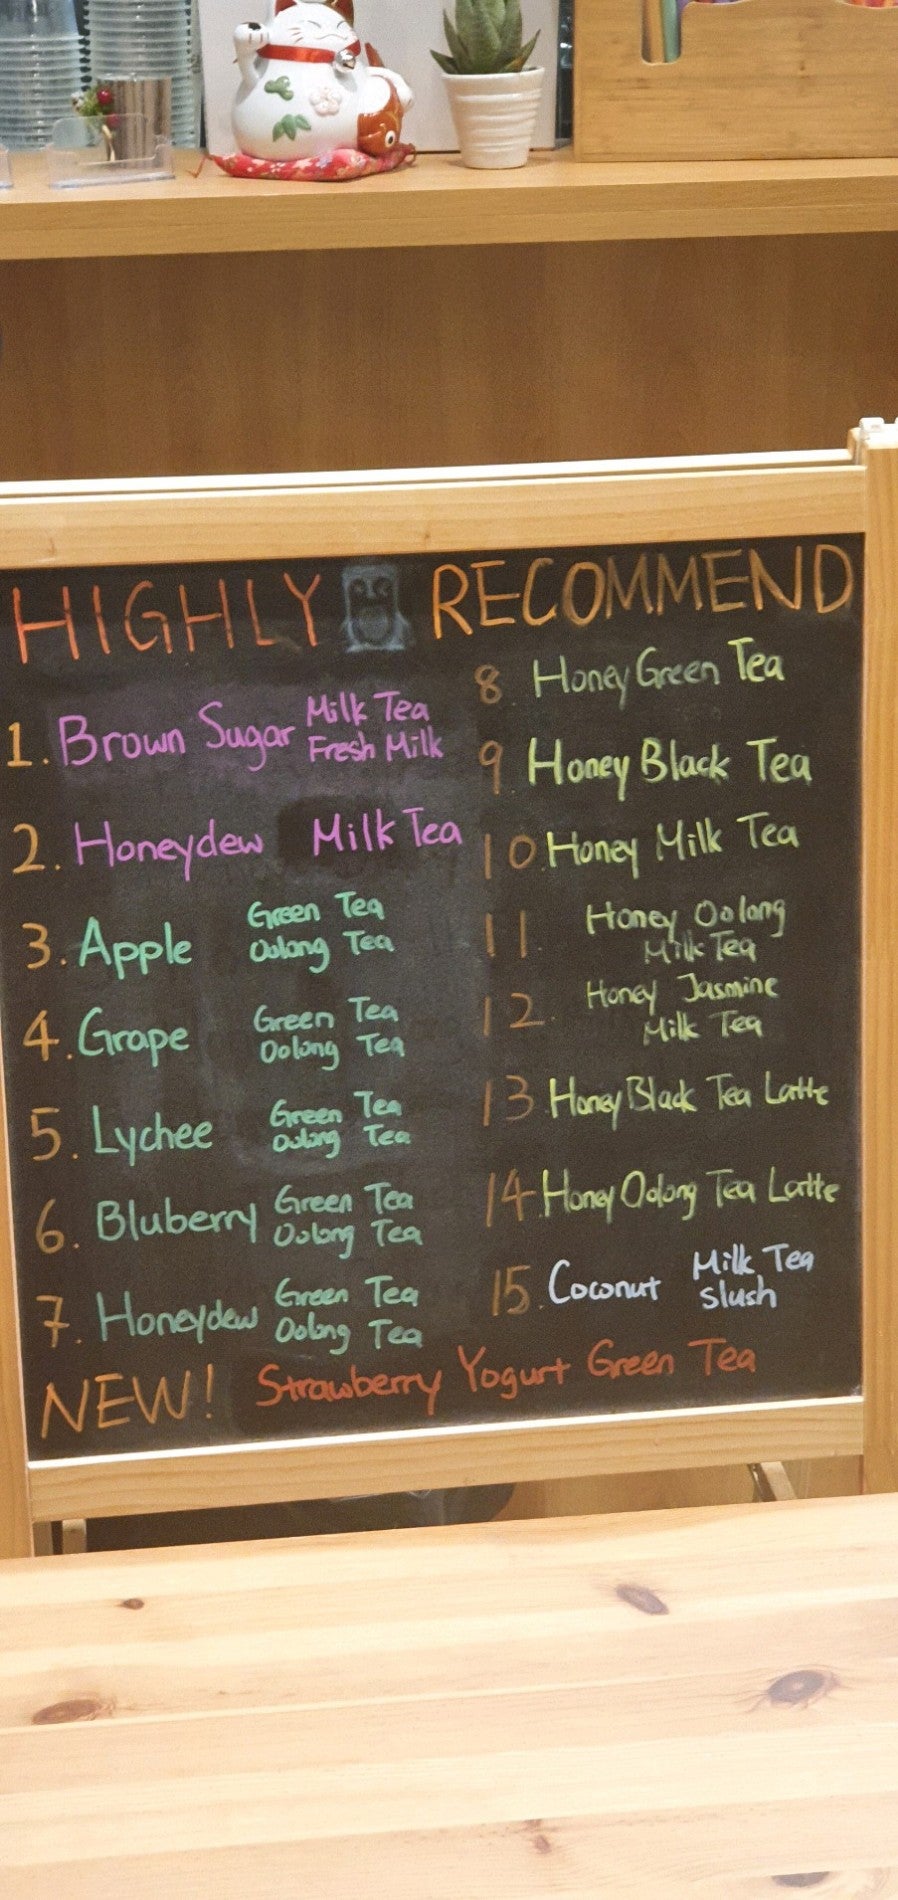 HIGHLY RECOMMEND
1. Brown Sugar Milk Tea
Fresh Milk
2. Honeydew Milk Tea
3. Apple Green Tea
Oolong Tea
4. Grape Green Tea
Oolong Tea
5. Lychee Green Tea
Oolong Tea
6. Bluberry Green Tea
Oolong Tea
7. Honeydew Green Tea
Oolong Tea
8 Honey Green Tea
9 Honey Black Tea
10. Honey Milk Tea
11. Honey Oolong
Milk Tea
12. Honey Jasmine
Milk Tea
13. Honey Black Tea Latte
14. Honey Oolong Tea Latte
15. Coconut Milk Tea
Slush
NEW! Strawberry Yogurt Green Tea